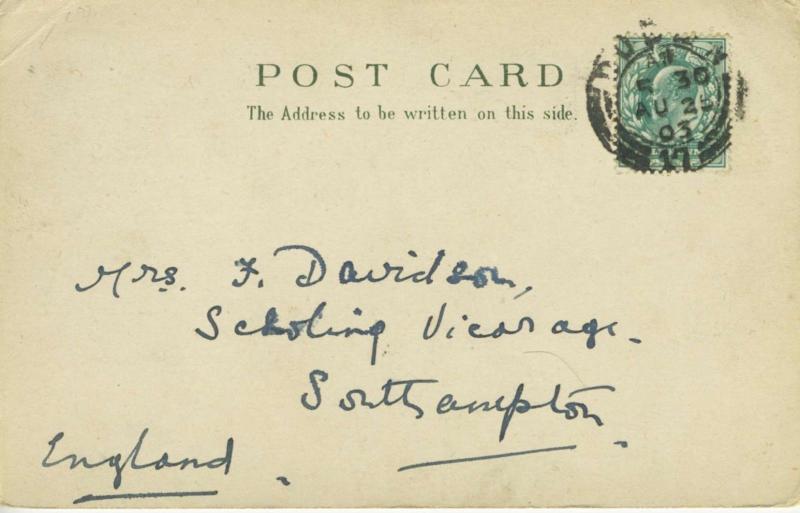 POST CARD
The Address to be written on this side.
5 30
AU 2
03
17
Mrs. F. Davidson,
Scholing Vicarage.
Southampton.
England.